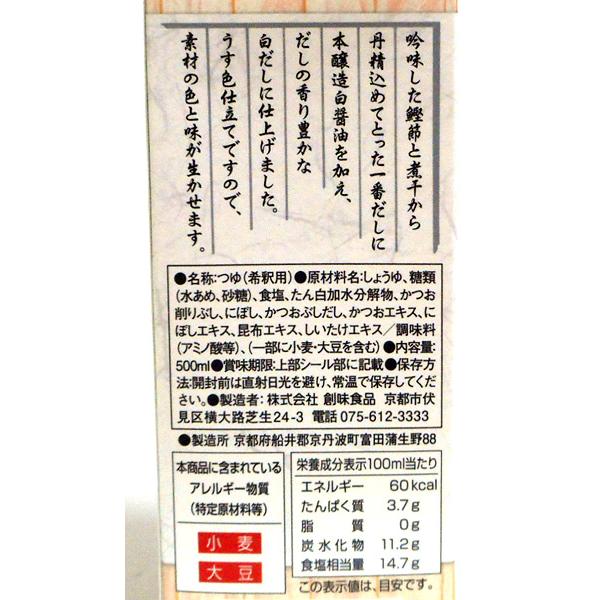 吟味した鰹節と煮干から
丹精込めてとった一番だしに
本醸造白醤油を加え、
だしの香り豊かな
白だしに仕上げました。
うす色仕立てですので、
素材の色と味が生かせます。
●名称:つゆ(希釈用)●原材料名:しょうゆ、糖類
(水あめ、砂糖)、食塩、たん白加水分解物、かつお
削りぶし、にぼし、かつおぶしだし、かつおエキス、に
ぼしエキス、昆布エキス、しいたけエキス/調味料
(アミノ酸等)、(一部に小麦・大豆を含む)●内容量:
500ml●賞味期限:上部シール部に記載●保存方
法:開封前は直射日光を避け、常温で保存してくだ
さい。●製造者:株式会社 創味食品 京都市伏
見区横大路芝生24-3 電話 075-612-3333
●製造所 京都府船井郡京丹波町富田蒲生野88
本商品に含まれている
アレルギー物質
(特定原材料等)
小麦
大豆
栄養成分表示100ml当たり
エネルギー 60kcal
たんぱく質 3.7g
脂質 0g
炭水化物 11.2g
食塩相当量 14.7g
この表示値は、目安です。